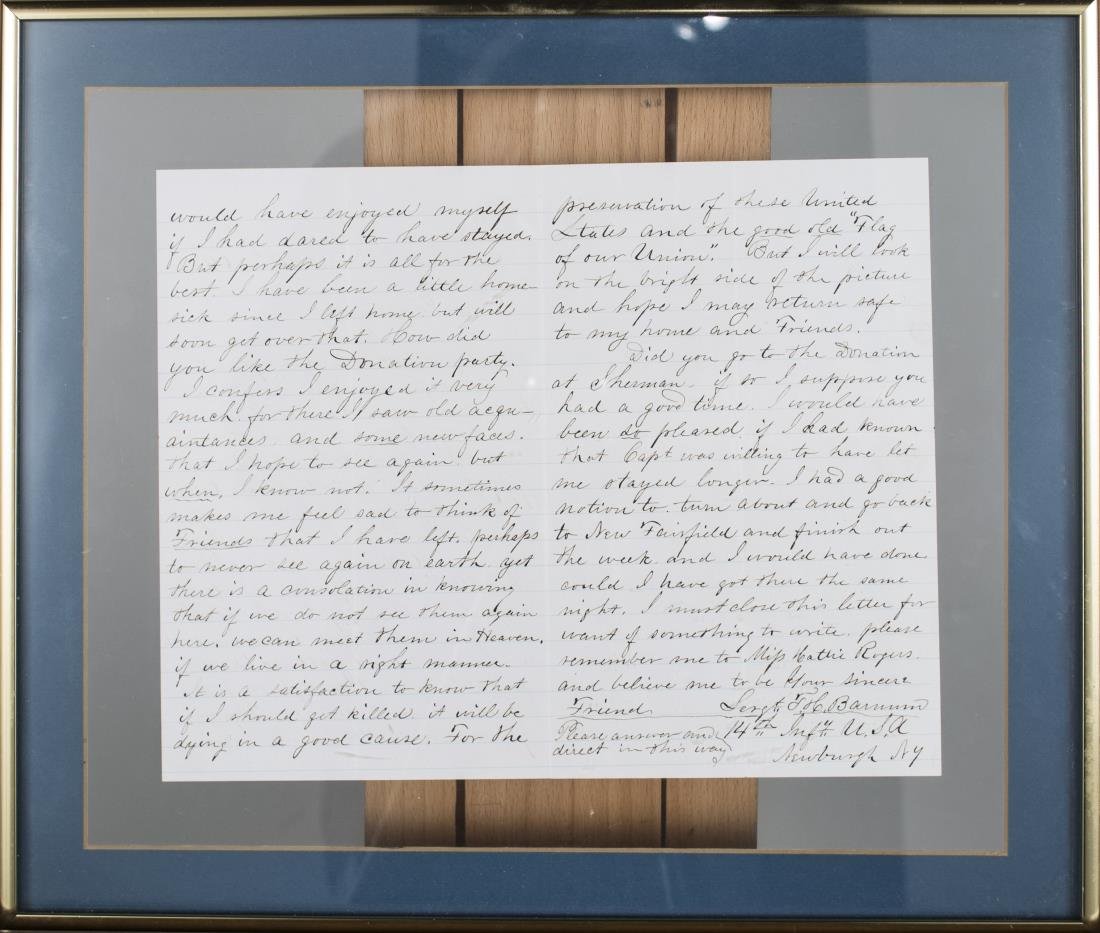 would have enjoyed myself
if I had dared to have stayed.
But perhaps it is all for the
best. I have been a little home-
sick since I left home but will
soon get over that. How did
you like the Donation party.
I confess I enjoyed it very
much, for there I saw old acqu-
aintances and some new faces.
that I hope to see again. but
when, I know not. It sometimes
makes me feel sad to think of
Friends that I have left. perhaps
to never see again on earth. yet
there is a consolation in knowing
that if we do not see them again
here. we can meet them in Heaven.
if we live in a right manner.
It is a satisfaction to know that
if I should get killed it will be
dying in a good cause. For the
preservation of these United
States and the good old "Flag
of our Union". But I will look
on the bright side of the picture
and hope I may return safe
to my home and Friends.
Did you go to the Donation
at Sherman. if so I suppose you
had a good time. I would have
been so pleased if I had known
that Capt was willing to have let
me stayed longer. I had a good
notion to turn about and go back
to New Fairfield and finish out
the week. and I would have done
could I have got there the same
night. I must close this letter for
want of something to write. please
remember me to Miss Hattie Rogers.
and believe me to be Your sincere
Friend. Sergt Barnum
Please answer and 14th Inft U.S.A
direct in this way Newburgh NY